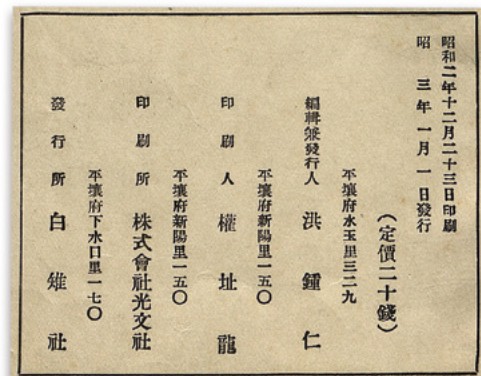 昭和二年十二月二十三日印刷
昭 三年一月一日發行
(定價二十錢)
平壤府水玉里三二九
編輯兼發行人 洪鍾仁
平壤府新陽里一五〇
印刷人 權址龍
平壤府新陽里一五〇
印刷所 株式會社光文社
平壤府下水口里一七〇
發行所 白雉社